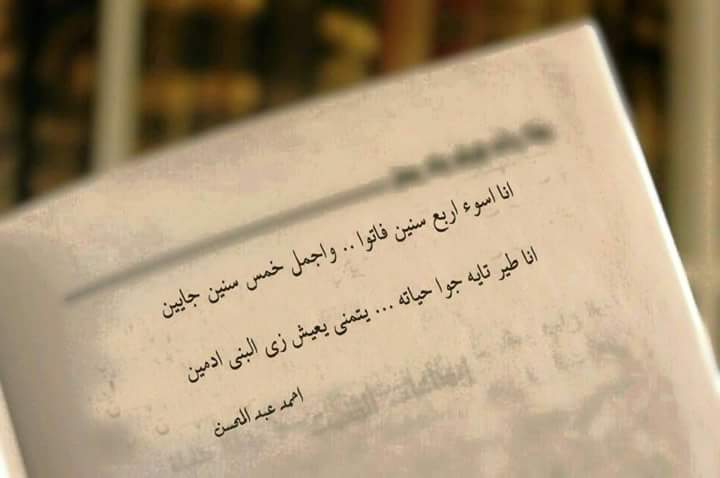 انا اسوء اربع سنين فاتوا .. واجمل خمس سنين جايين
انا طير تايه جوا حياته ... يتمنى يعيش زى البنى ادمين
احمد عبد المحسن